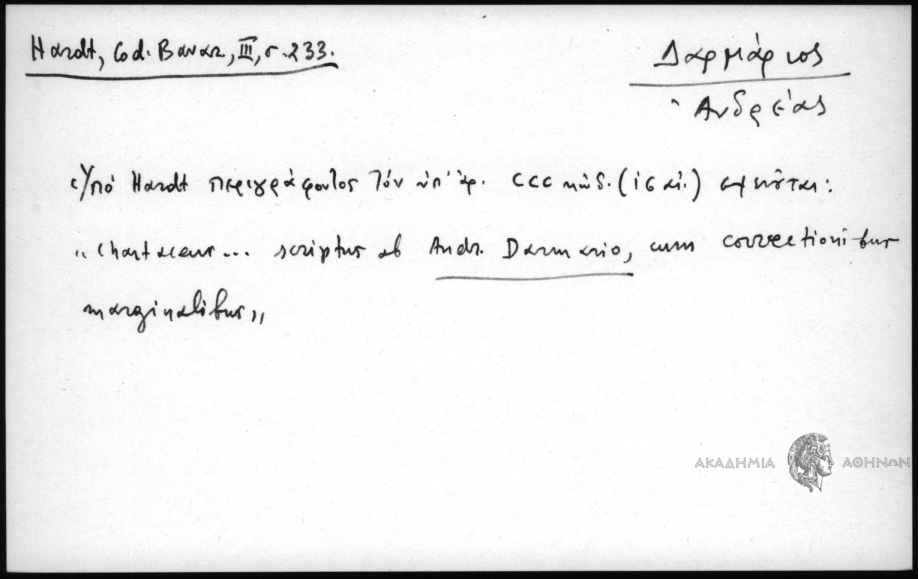 Hardt, Cod. Bavar., III, σ. 233.
Δαρμάριος
Ἀνδρέας
Ὑπό Hardt περιγράφοντος τόν ὑπ' ἀρ. CCC κώδ. (ις αἰ.) σημειοῦται:
„chartaceus... scriptus ab Andr. Darmario, cum correctionibus
marginalibus„
ΑΚΑΔΗΜΙΑ ΑΘΗΝΩΝ